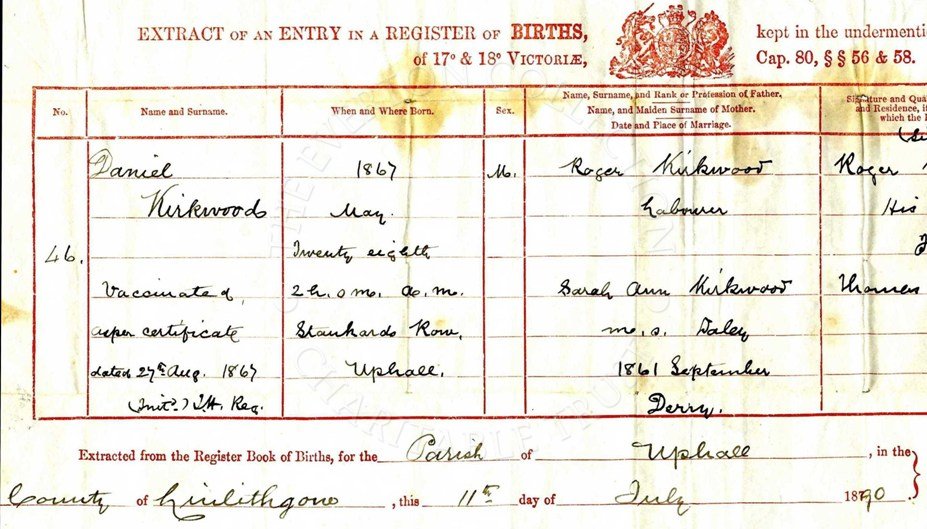 EXTRACT OF AN ENTRY IN A REGISTER OF BIRTHS,
kept in the undermenti
of 17° & 18° VICTORIÆ,
Cap. 80, § § 56 & 58.
No.
Name and Surname.
When and Where Born.
Sex.
Name, Surname, and Rank or Profession of Father.
Name, and Maiden Surname of Mother.
Date and Place of Marriage.
Signature and Qua
and Residence, i
which the
46.
Daniel
Kirkwood
Vaccinated
as per certificate
dated 27th Aug. 1867
(Init.) J.H. Reg.
1867
May
Twenty eighth
2 h. 0 m. a.m.
Stankards Row,
Uphall.
M.
Roger Kirkwood
Labourer
Sarah Ann Kirkwood
m.s. Daley
1861 September
Derry.
Roger
His
Thomas
Extracted from the Register Book of Births, for the Parish of Uphall, in the
County of Linlithgow, this 11th day of July 1890